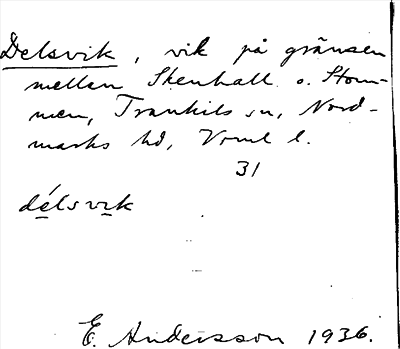 Delsvik, vik på gränsen
mellan Skenhall o. Stom-
men, Trankils sn, Nord-
marks hd, Vrml l.
31
délsvik
E. Andersson 1936.